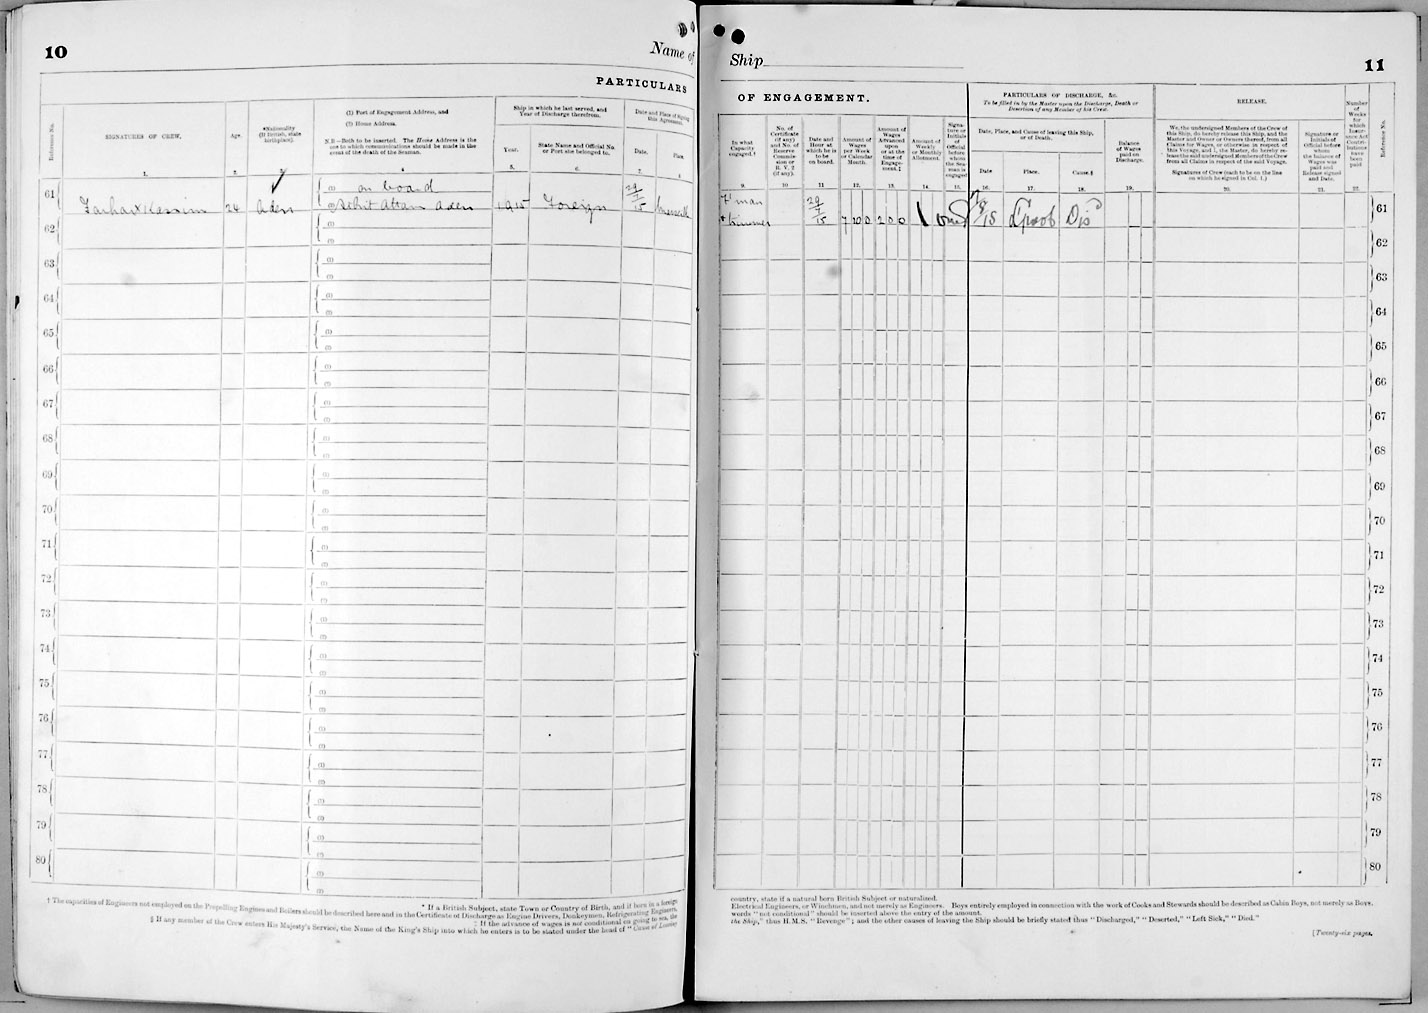 10
Name of
PARTICULARS
Reference No.
SIGNATURES OF CREW.
Age.
*Nationality
(If British, state
birthplace).
(1) Port of Engagement Address, and
(2) Home Address.
N.B.—Both to be inserted. The Home Address is the
one to which communications should be made in the
event of the death of the Seaman.
Ship in which he last served, and
Year of Discharge therefrom.
Year.
State Name and Official No.
or Port she belonged to.
Date and Place of Signing
this Agreement.
Date.
Place.
1.
2.
3.
4
5.
6.
7.
8
61
(1) on board
Farhan Kassim 24 Aden
(2) Aden 1915 Foreign
62
63
64
65
66
67
68
69
70
71
72
73
74
75
76
77
78
79
80
† The capacities of Engineers not employed on the Propelling Engines and Boilers should be described here and in the Certificate of Discharge as Engine Drivers, Donkeymen, Refrigerating Engineers,
* If a British Subject, state Town or Country of Birth, and if born in a foreign
‡ If the advance of wages is not conditional on going to sea, the
§ If any member of the Crew enters His Majesty's Service, the Name of the King's Ship into which he enters is to be stated under the head of "Cause of Leaving
Ship
11
OF ENGAGEMENT.
PARTICULARS OF DISCHARGE, &c.
To be filled in by the Master upon the Discharge, Death or
Desertion of any Member of his Crew.
RELEASE.
In what
Capacity
engaged.†
No. of
Certificate
(if any)
and No. of
Reserve
Commis-
sion or
R. V. 2
(if any).
Date and
Hour at
which he is
to be
on board.
Amount of
Wages
per Week
or Calendar
Month.
Amount of
Wages
Advanced
upon
or at the
time of
Engage-
ment.‡
Amount of
Weekly
or Monthly
Allotment.
Signa-
ture or
Initials
of
Official
before
whom
the Sea-
man is
engaged
Date, Place, and Cause of leaving this Ship,
or of Death.
Date
Place.
Cause.§
Balance
of Wages
paid on
Discharge.
We, the undersigned Members of the Crew of
this Ship, do hereby release this Ship, and the
Master and Owner or Owners thereof, from all
Claims for Wages, or otherwise in respect of
this Voyage, and I, the Master, do hereby re-
lease the said undersigned Members of the Crew
from all Claims in respect of the said Voyage.
Signatures of Crew (each to be on the line
on which he signed in Col. 1.)
Signature or
Initials of
Official before
whom
the balance of
Wages was
paid and
Release signed
and Date.
Number
of
Weeks
for
which
Insur-
ance Act
Contri-
butions
have
been
paid
Reference No.
9.
10
11
12.
13.
14.
15.
16.
17.
18.
19.
20.
21.
22.
F'man
& trimmer 7 10 0 2 0 0 L'pool Dis
61
62
63
64
65
66
67
68
69
70
71
72
73
74
75
76
77
78
79
80
country, state if a natural born British Subject or naturalized.
Electrical Engineers, or Winchmen, and not merely as Engineers. Boys entirely employed in connection with the work of Cooks and Stewards should be described as Cabin Boys, not merely as Boys.
words "not conditional" should be inserted above the entry of the amount.
the Ship," thus H.M.S. "Revenge"; and the other causes of leaving the Ship should be briefly stated thus "Discharged," "Deserted," "Left Sick," "Died."
[Twenty-six pages.